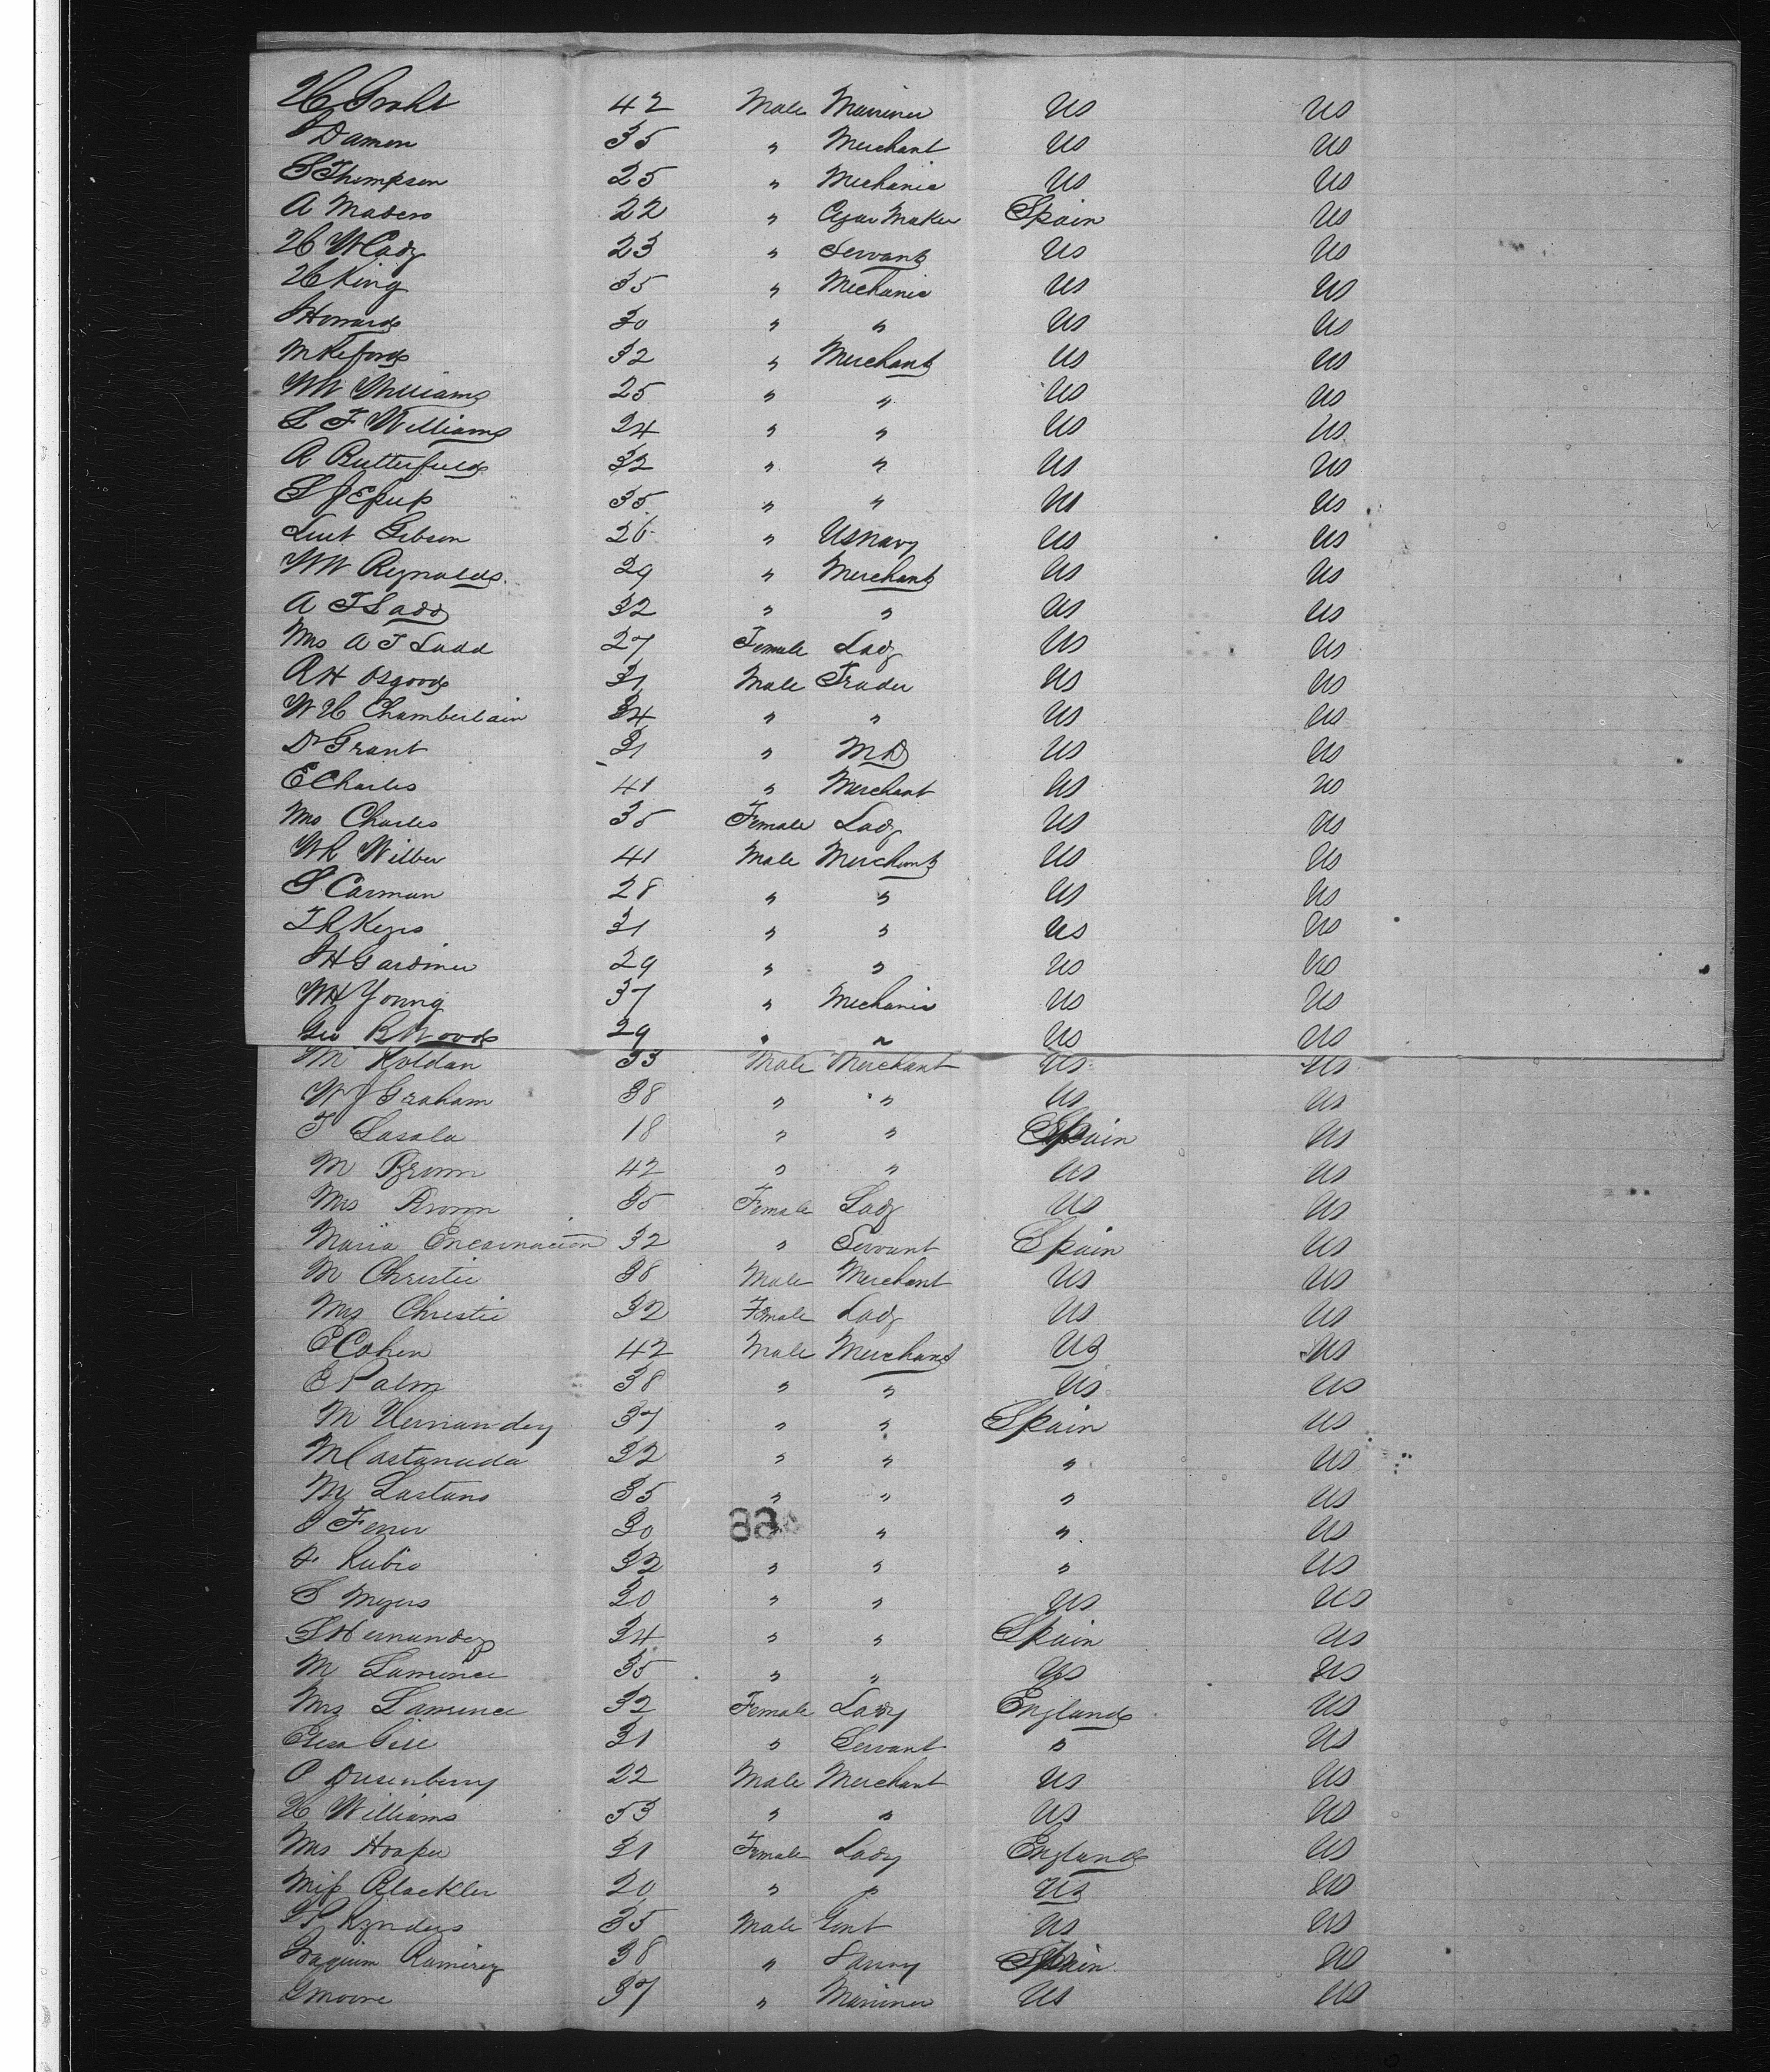 42 Male Mariner US US
Damon 35 " Merchant US US
S Thompson 25 " Mechanic US US
A Madero 22 " Cigar Maker Spain US
H W Cady 23 " Servant US US
H King 35 " Mechanic US US
J Howard 30 " " US US
32 " Merchant US US
Wm Williams 25 " " US US
L F Williams 24 " " US US
A Butterfield 32 " " US US
35 " " US US
Lieut Gibson 26 " US Navy US US
Wm Reynolds 29 " Merchant US US
A T Ladd 32 " " US US
Mrs A T Ladd 27 Female Lady US US
R H Osgood 31 Male Trader US US
W H Chamberlain 34 " " US US
Dr Grant 31 " MD US US
E Charles 41 " Merchant US US
Mrs Charles 35 Female Lady US US
Wh Wilber 41 Male Merchant US US
S Carman 28 " " US US
31 " " US US
J H Gardiner 29 " " US US
W H Young 37 " Mechanic US US
Geo B Wood 29 " " US US
M Roldan 33 Male Merchant US US
W J Graham 38 " " US US
F Lasala 18 " " Spain US
M Brown 42 " " US US
Mrs Brown 35 Female Lady US US
Maria Encarnacion 32 " Servant Spain US
M Christie 38 Male Merchant US US
Mrs Christie 32 Female Lady US US
E Cohen 42 Male Merchant US US
E Palm 38 " " US US
M Hernandez 37 " " Spain US
M Castanada 32 " " " US
My Lastano 35 " " " US
J Ferrer 30 " " " US
F Rubio 32 " " " US
S Myers 30 " " US US
S Hernandez 34 " " Spain US
M Lawrence 35 " " US US
Mrs Lawrence 32 Female Lady England US
Eliza Gill 31 " Servant " US
C Dusenberry 22 Male Merchant US US
H Williams 53 " " US US
Mrs Hooper 31 Female Lady England US
Miss Blackler 20 " " US US
Rynders 35 Male Gent US US
Joaquim Ramirez 38 " Spain US
G Moore 37 " Mariner US US